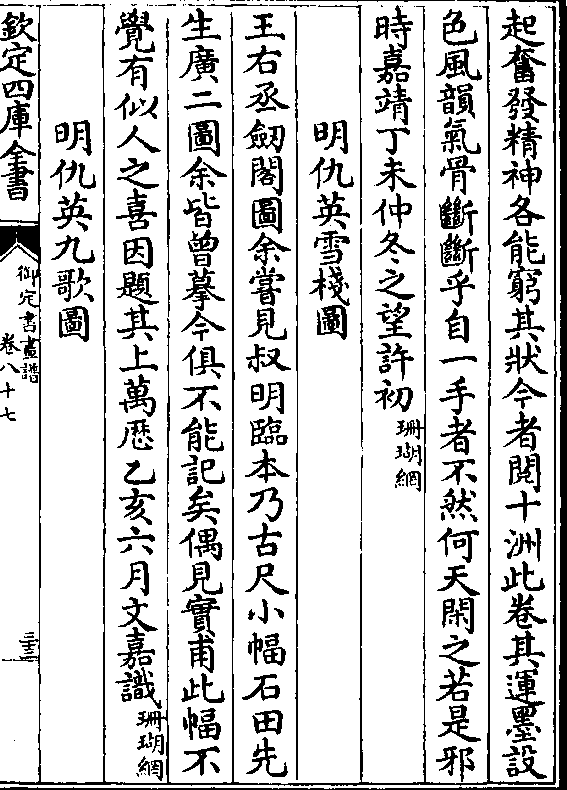 起奮發精神各能窮其狀今者閱十洲此卷其運墨設
色風韻氣骨斷斷乎自一手者不然何天閑之若是邪
時嘉靖丁未仲冬之望許初珊瑚網
明仇英雪棧圖
王右丞劒閣圖余嘗見叔明臨本乃古尺小幅石田先
生廣二圖余皆曾摹今俱不能記矣偶見實甫此幅不
覺有似人之喜因題其上萬厯乙亥六月文嘉識珊瑚網
明仇英九歌圖
欽定四庫全書
御定書畫譜
卷八十七
三十三